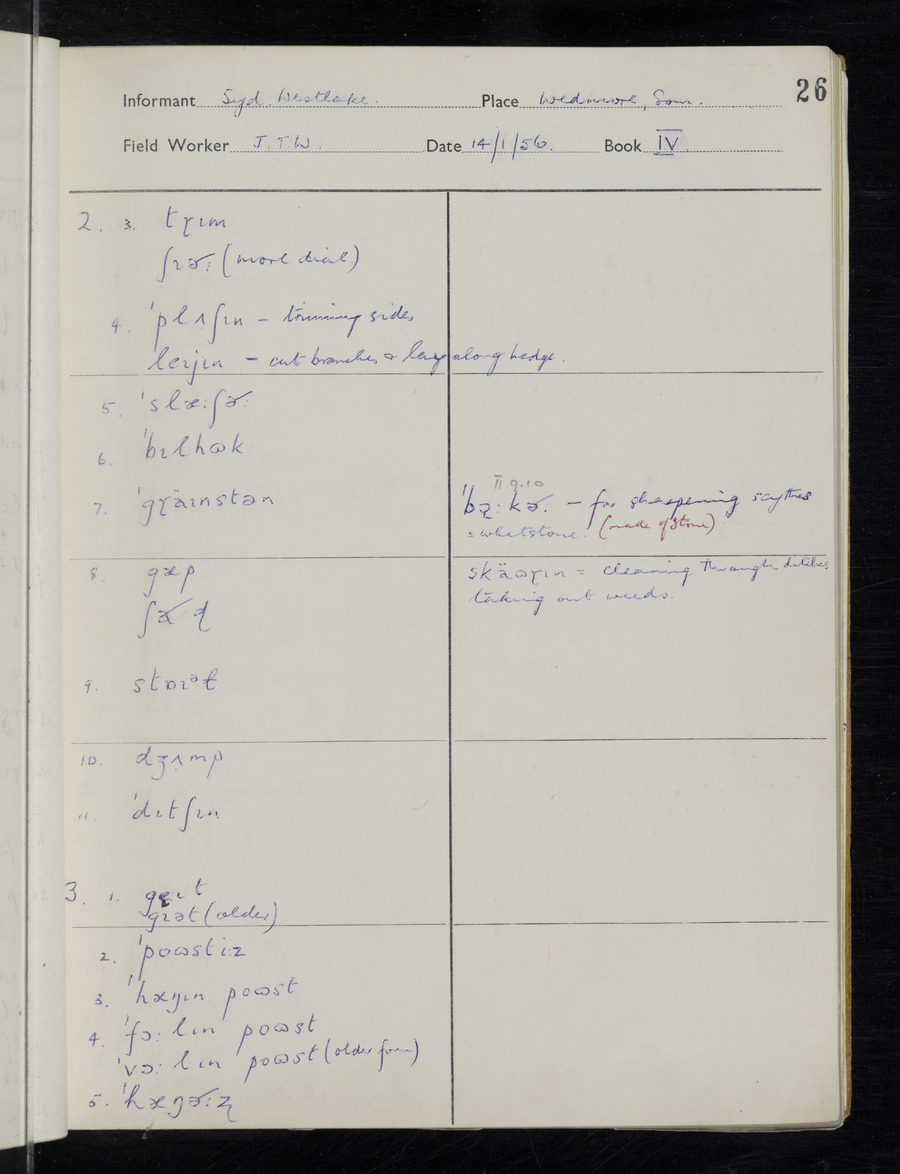 26
Informant Syd Westlake. Place Wedmore, Som.
Field Worker J.T.W. Date 14/1/56. Book IV.
2. 3. tɽɩm
ʃɩɚ: (more dial.)
4. 'plʌʃɩn – trimming sides
leɩjɩn – cut branches & lay along hedge.
5. 'slæ:ʃɚ:
6. 'bɩlhɷk
7. 'gɽäɩnstən
II.9.10
– for sharpening scythes
= whetstone. (made of stone)
8. gæp
skäɷɽɩn = cleaning through ditches
taking out weeds.
9. stɒɩᵊɫ
10. dʒʌmp
11. 'dɩtʃɩn
3. 1. geɩt
gɩət (older)
2. 'poɷsti:z
3. 'hæŋɩn poɷst
4. 'fɔ:lɩn poɷst
'vɔ:lɩn poɷst (older form)
5. 'hæŋɚ:ʐ